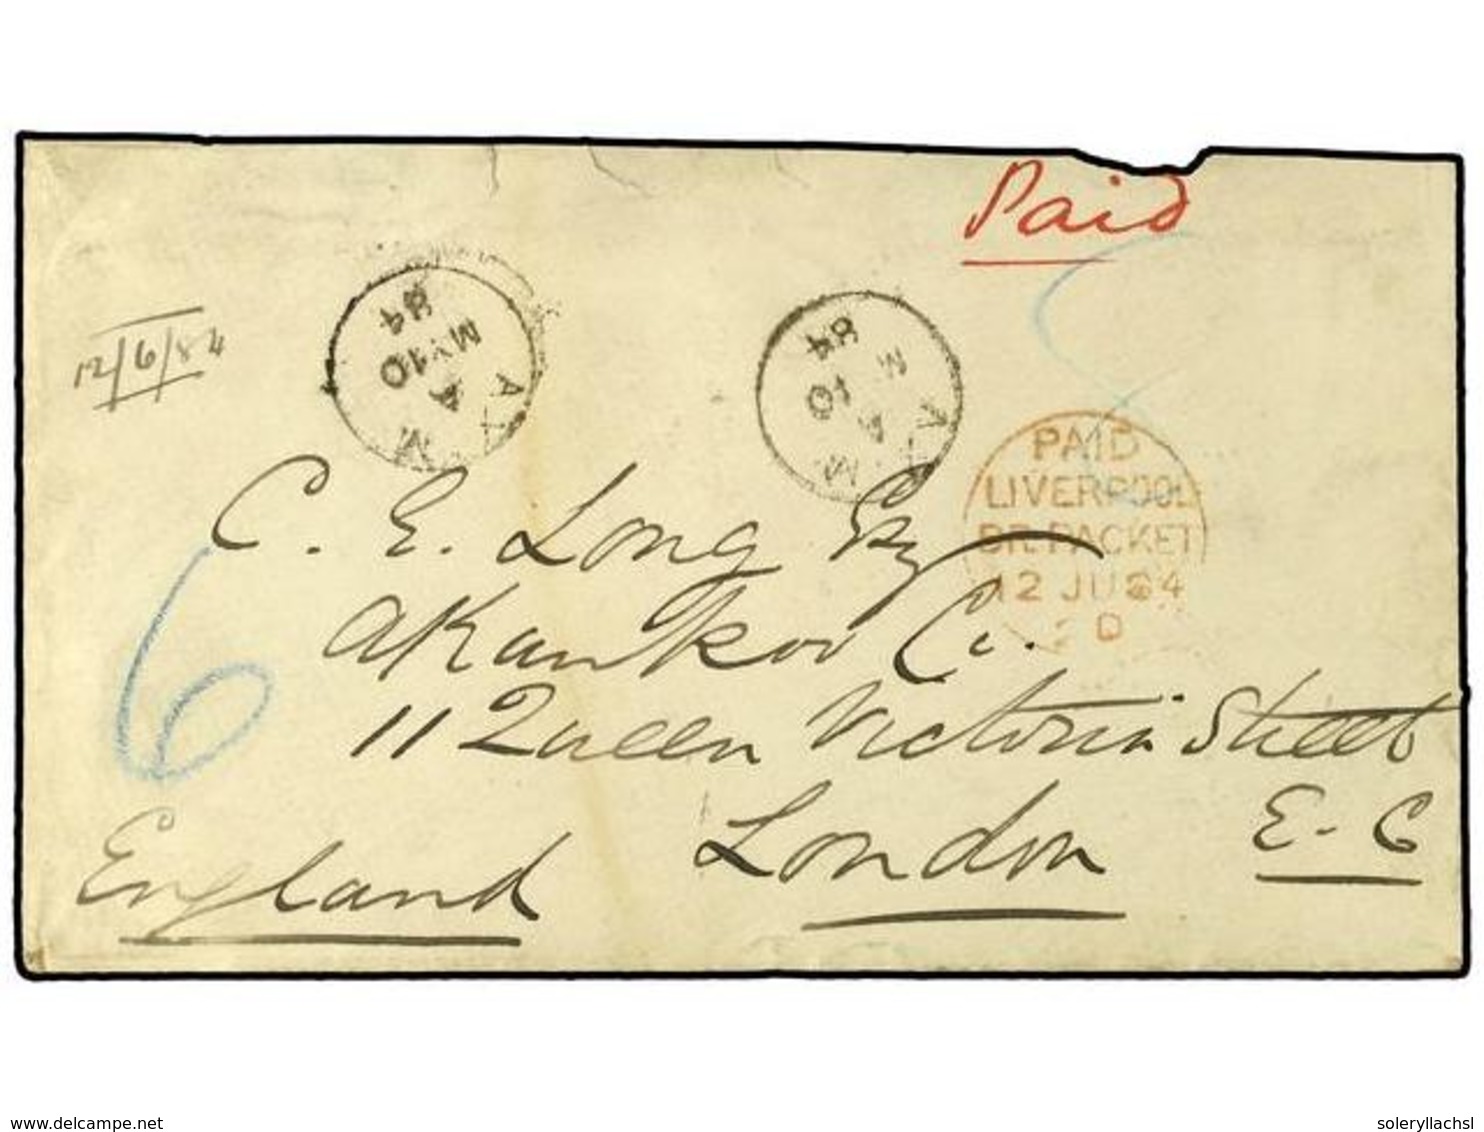 Paid
12/6/84
84
MY10
A
AXIM
84
M
10
A
AXIM
PAID
LIVERPOOL
BR.PACKET
12 JU 84
D
C. E. Long Esq
Akankoo Co.
11 Queen Victoria Street
London E.C
England
6
www.delcampe.net
soleryllachsl